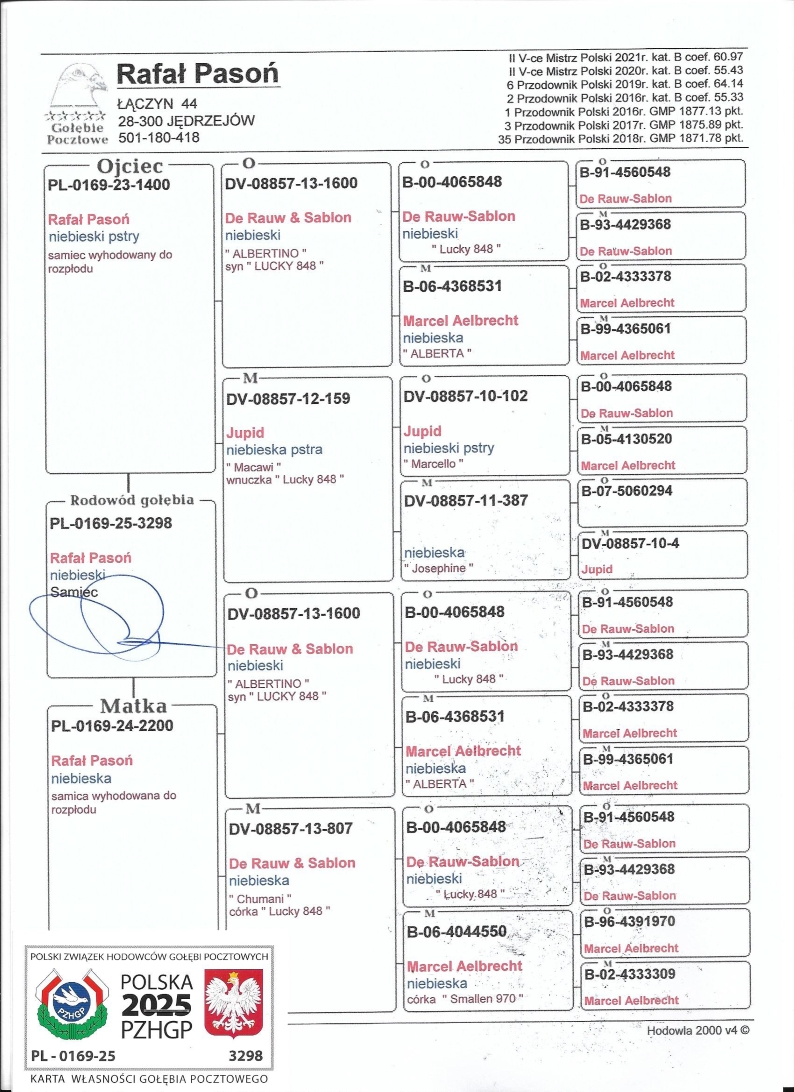 Rafał Pasoń
ŁĄCZYN 44
28-300 JĘDRZEJÓW
501-180-418
Gołębie
Pocztowe
II V-ce Mistrz Polski 2021r. kat. B coef. 60.97
II V-ce Mistrz Polski 2020r. kat. B coef. 55.43
6 Przodownik Polski 2019r. kat. B coef. 64.14
2 Przodownik Polski 2016r. kat. B coef. 55.33
1 Przodownik Polski 2016r. GMP 1877.13 pkt.
3 Przodownik Polski 2017r. GMP 1875.89 pkt.
35 Przodownik Polski 2018r. GMP 1871.78 pkt.
Ojciec
PL-0169-23-1400
Rafał Pasoń
niebieski pstry
samiec wyhodowany do
rozpłodu
Rodowód gołębia
PL-0169-25-3298
Rafał Pasoń
niebieski
Samiec
Matka
PL-0169-24-2200
Rafał Pasoń
niebieska
samica wyhodowana do
rozpłodu
O
DV-08857-13-1600
De Rauw & Sablon
niebieski
" ALBERTINO "
syn " LUCKY 848 "
M
DV-08857-12-159
Jupid
niebieska pstra
" Macawi "
wnuczka " Lucky 848 "
O
DV-08857-13-1600
De Rauw & Sablon
niebieski
" ALBERTINO "
syn " LUCKY 848 "
M
DV-08857-13-807
De Rauw & Sablon
niebieska
" Chumani "
córka " Lucky 848 "
O
B-00-4065848
De Rauw-Sablon
niebieski
" Lucky 848 "
M
B-06-4368531
Marcel Aelbrecht
niebieska
" ALBERTA "
O
DV-08857-10-102
Jupid
niebieski pstry
" Marcello "
M
DV-08857-11-387
niebieska
" Josephine "
O
B-00-4065848
De Rauw-Sablon
niebieski
" Lucky 848 "
M
B-06-4368531
Marcel Aelbrecht
niebieska
" ALBERTA "
O
B-00-4065848
De Rauw-Sablon
niebieski
" Lucky 848 "
M
B-06-4044550
Marcel Aelbrecht
niebieska
córka " Smallen 970 "
O
B-91-4560548
De Rauw-Sablon
M
B-93-4429368
De Rauw-Sablon
O
B-02-4333378
Marcel Aelbrecht
M
B-99-4365061
Marcel Aelbrecht
O
B-00-4065848
De Rauw-Sablon
M
B-05-4130520
Marcel Aelbrecht
O
B-07-5060294
M
DV-08857-10-4
Jupid
O
B-91-4560548
De Rauw-Sablon
M
B-93-4429368
De Rauw-Sablon
O
B-02-4333378
Marcel Aelbrecht
M
B-99-4365061
Marcel Aelbrecht
O
B-91-4560548
De Rauw-Sablon
M
B-93-4429368
De Rauw-Sablon
O
B-96-4391970
Marcel Aelbrecht
M
B-02-4333309
Marcel Aelbrecht
Hodowla 2000 v4 ©
POLSKI ZWIĄZEK HODOWCÓW GOŁĘBI POCZTOWYCH
PZHGP
POLSKA
2025
PZHGP
PL - 0169-25 3298
KARTA WŁASNOŚCI GOŁĘBIA POCZTOWEGO